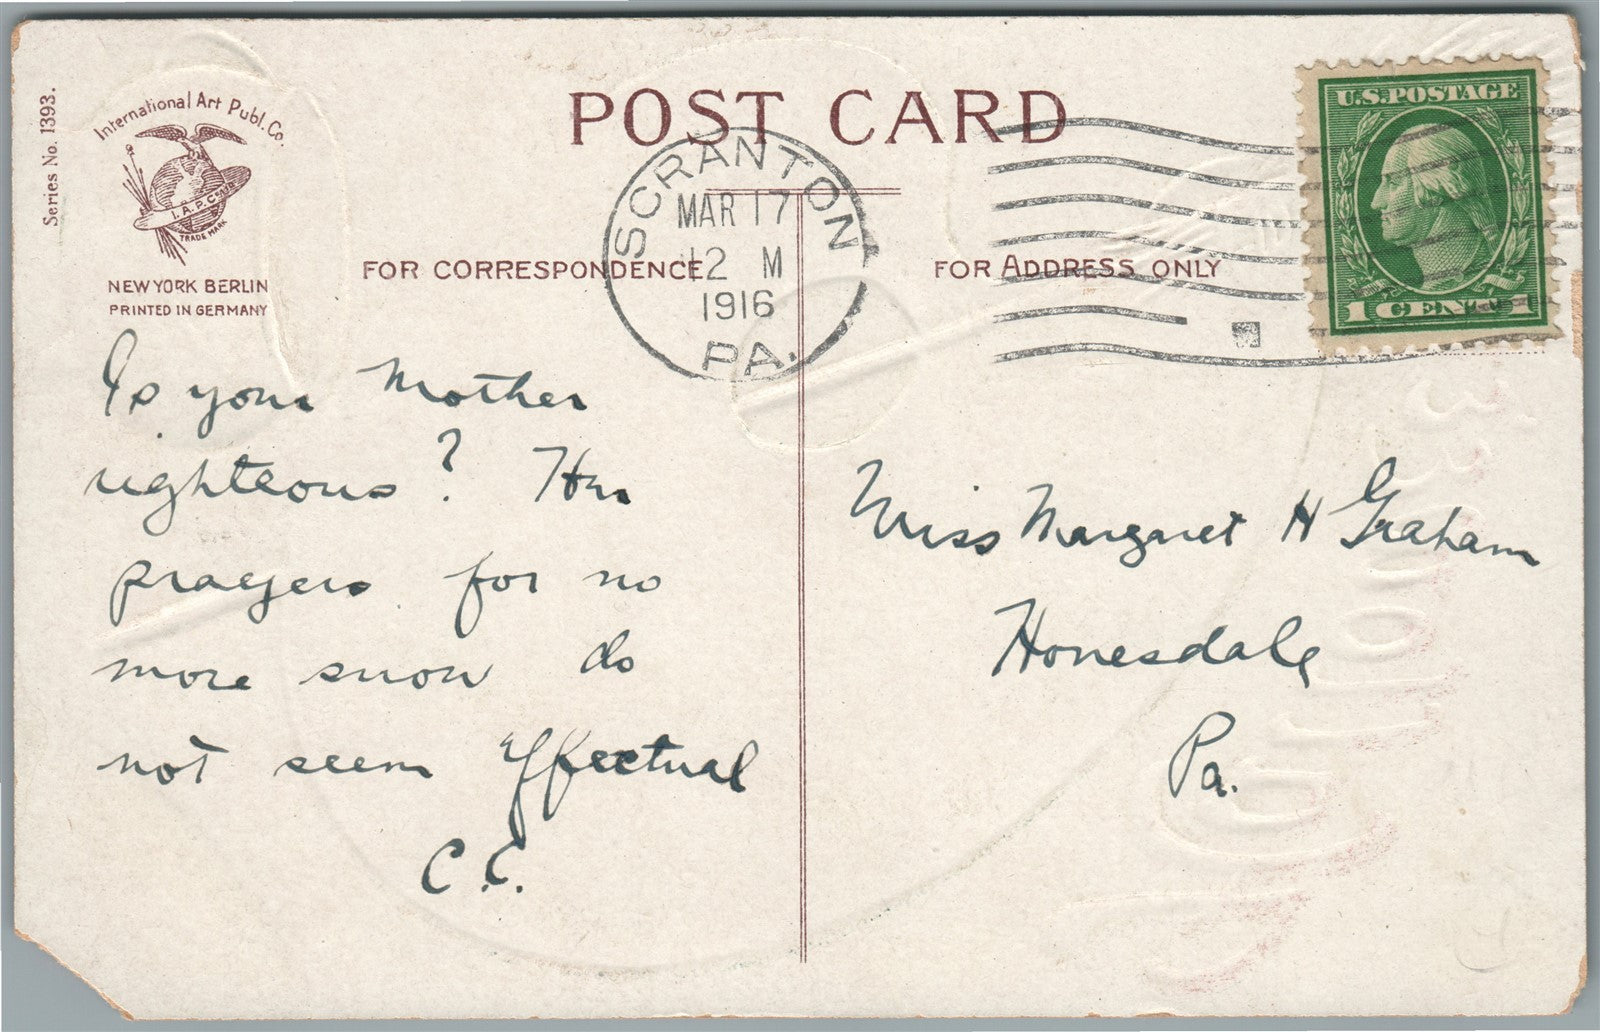 Series No. 1393.
International Art Publ. Co.
I. A. P. C
TRADE MARK
NEW YORK BERLIN
PRINTED IN GERMANY
POST CARD
FOR CORRESPONDENCE
FOR ADDRESS ONLY
SCRANTON
MAR 17
12 M
1916
PA.
U.S. POSTAGE
1 CENT 1
Is your Mother
righteous? Her
prayers for no
more snow do
not seem Effectual
C.C.
Miss Margaret H Graham
Honesdale
Pa.